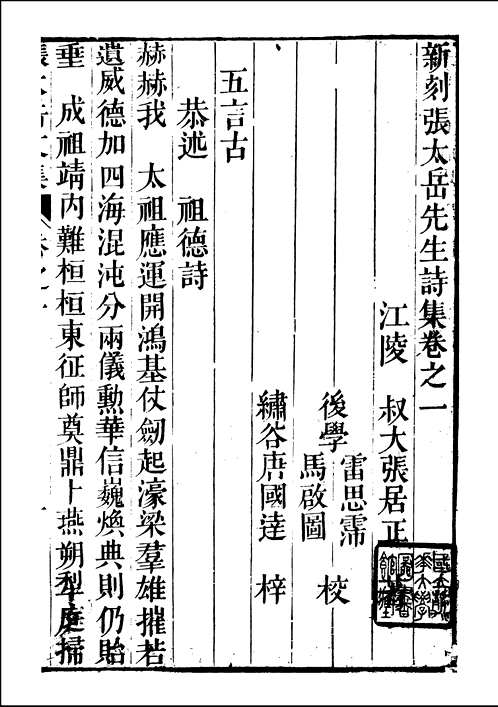 新刻張太岳先生詩集卷之一
江陵　叔大張居正
後學　雷思霈
馬啟圖　校
繡谷唐國達　梓
五言古
恭述　祖德詩
赫赫我　太祖應運開鴻基仗劒起濠梁羣雄摧若
遺威德加四海混沌分兩儀勳華信巍煥典則仍貽
垂　成祖靖內難桓桓東征師奠鼎卜燕朔犁庭掃